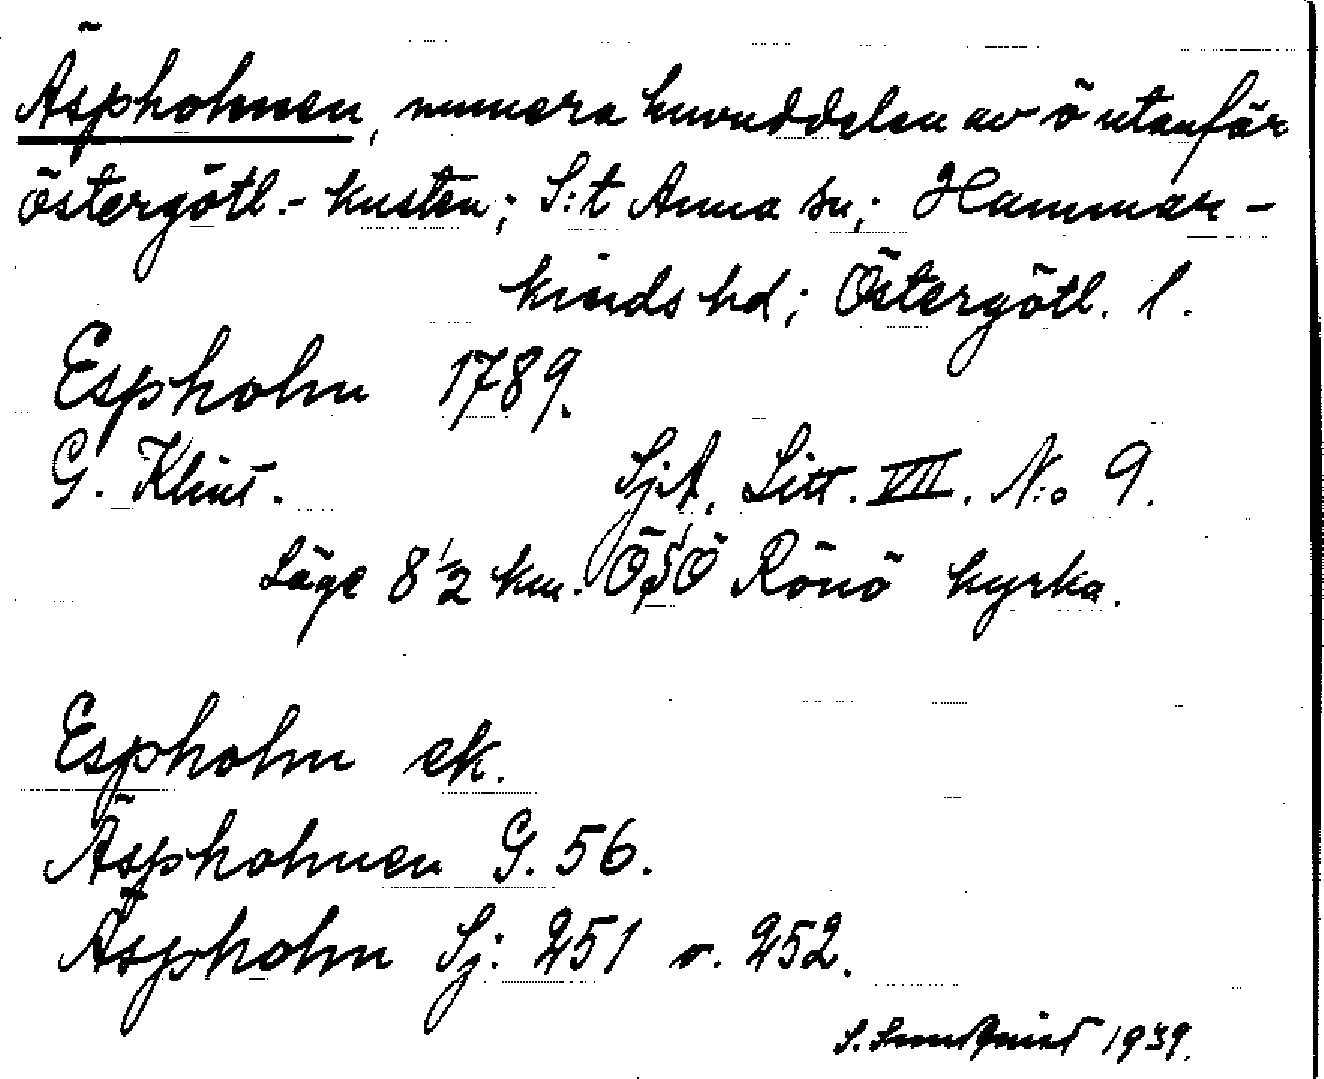 Äspholmen, numera huvuddelen av ö utanför
östergötl.-kusten; S:t Anna sn; Hammar-
kinds hd; Östergötl. l.
Espholm 1789.
G. Klint. SjA, Litt. VII. N:o 9.
Läge 8 1/2 km. ÖSÖ Rönö kyrka.
Espholm ek.
Äspholmen G. 56.
Äspholm Sj: 251 o. 252.
S. Sundqvist 1939.